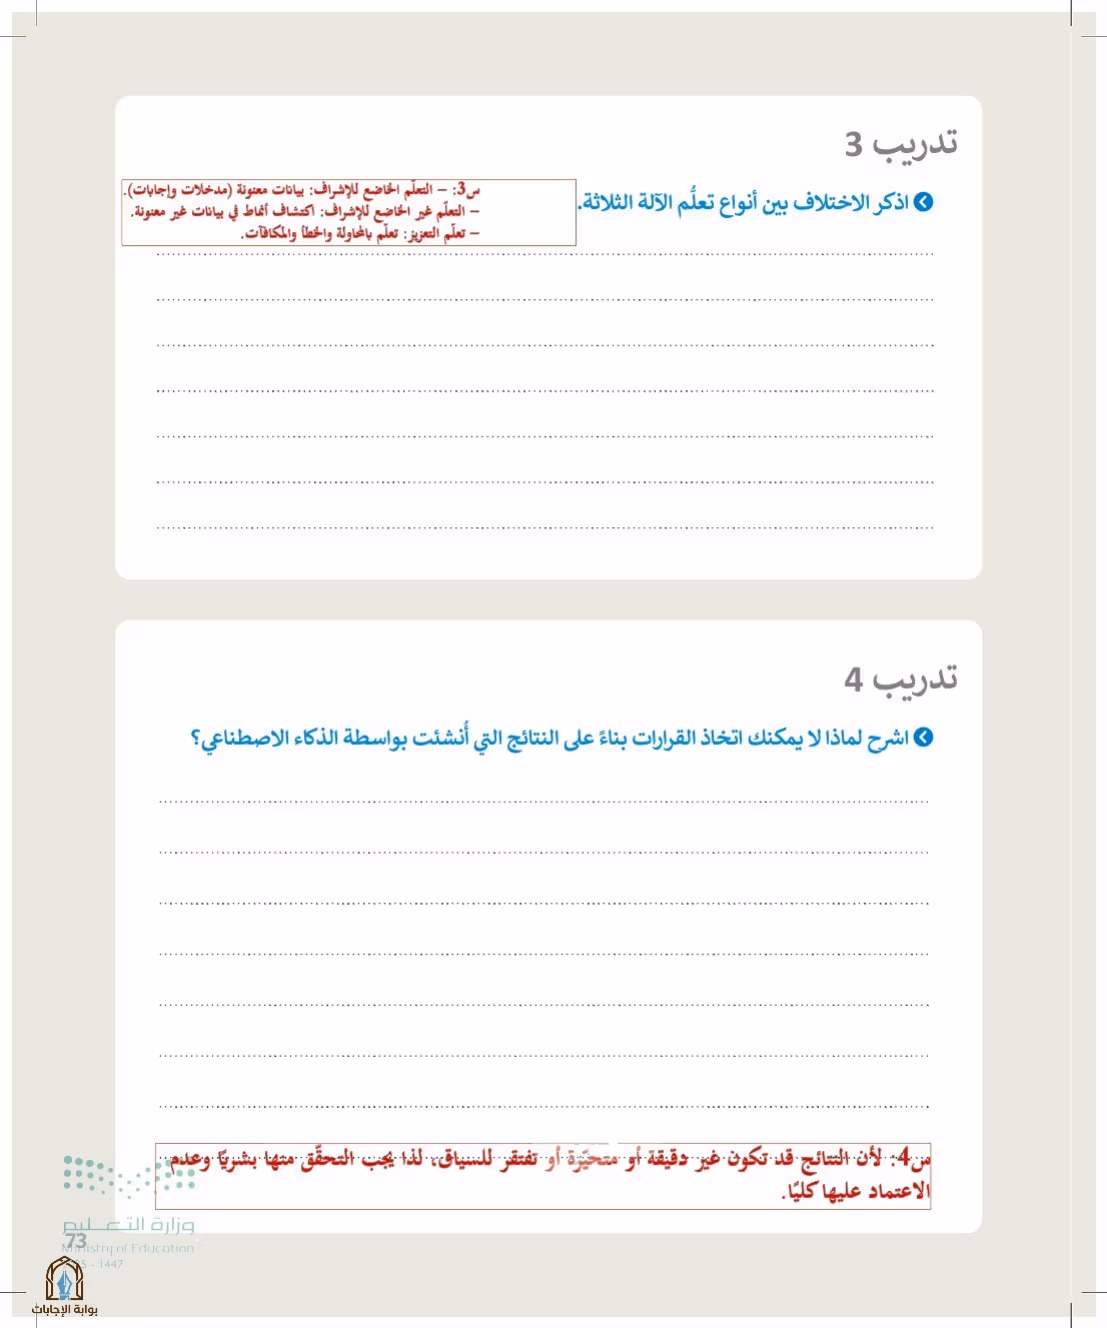 تدريب 3
اذكر الاختلاف بين أنواع تعلُّم الآلة الثلاثة.
س3: – التعلّم الخاضع للإشراف: بيانات معنونة (مدخلات وإجابات).
– التعلّم غير الخاضع للإشراف: اكتشاف أنماط في بيانات غير معنونة.
– تعلّم التعزيز: تعلّم بالمحاولة والخطأ والمكافآت.
تدريب 4
اشرح لماذا لا يمكنك اتخاذ القرارات بناءً على النتائج التي أُنشئت بواسطة الذكاء الاصطناعي؟
س4: لأن النتائج قد تكون غير دقيقة أو متحيّزة أو تفتقر للسياق، لذا يجب التحقّق منها بشريًا وعدم
الاعتماد عليها كليًا.
وزارة التعليم
73
Ministry of Education
- 1447
بوابة الإجابات